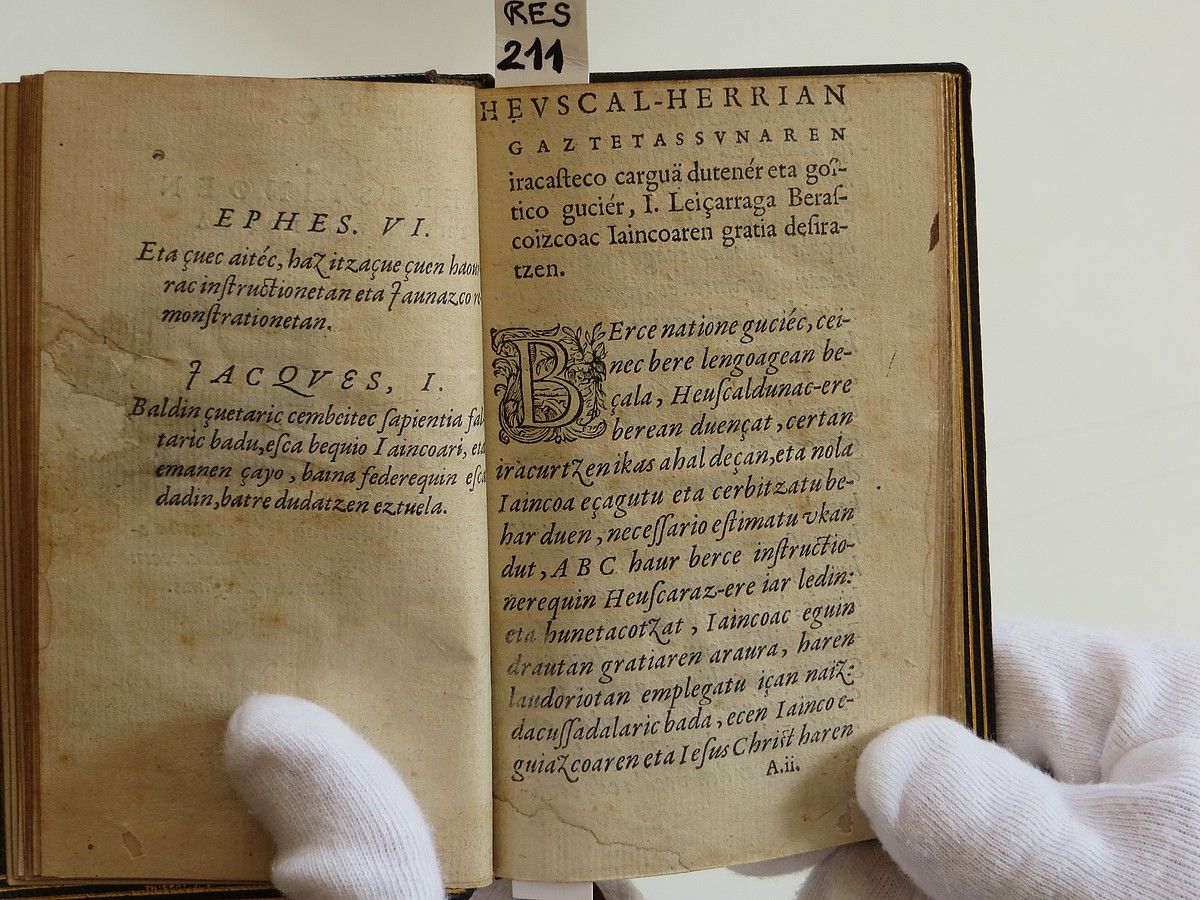 RES
211
EPHES. VI.
Eta çuec aitéc, haz itzaçue çuen
rac inſtructionetan eta Jaunazco
monſtrationetan.
JACQVES, I.
Baldin çuetaric cembeitec ſapientia
taric badu, eſca bequio Iaincoari, eta
emanen çayo, baina federequin
dadin, batre dudatzen eztuela.
HEVSCAL-HERRIAN
GAZTETASSVNAREN
iracaſteco carguä dutenér eta goſ-
tico guciér, I. Leiçarraga Beraſ-
coizcoac Iaincoaren gratia deſira-
tzen.
BErce natione guciéc, cei-
nec bere lengoagean be-
çala, Heuſcaldunac-ere
berean duençat, certan
iracurtzen ikas ahal deçan, eta nola
Iaincoa eçagutu eta cerbitzatu be-
har duen, neceſſario eſtimatu vkan
dut, A B C haur berce inſtructio-
nerequin Heuſcaraz-ere iar ledin:
eta hunetacotzat, Iaincoac eguin
drautan gratiaren araura, haren
laudoriotan emplegatu içan naiz:
dacuſſadalaric bada, ecen Iainco e-
guiazcoaren eta Ieſus Chriſt haren
A.ii.